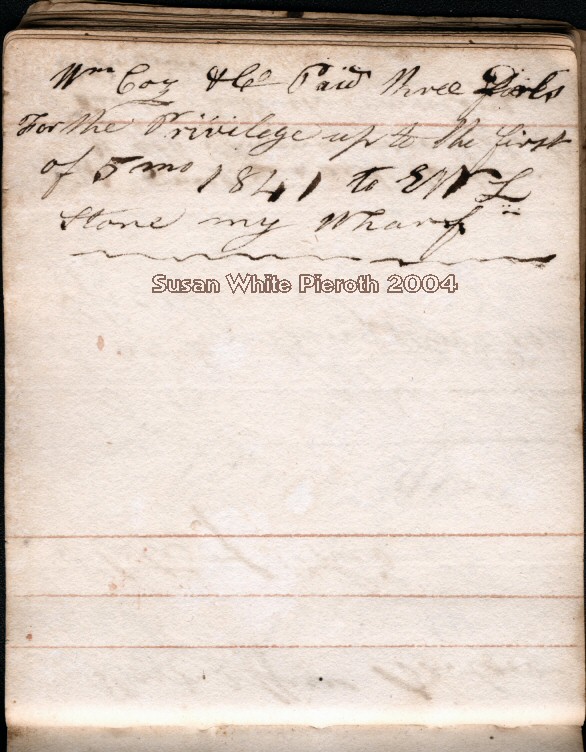 Wm Coy & Co Paid three
For the Privilege up to the first
of 5 mo 1841 to
Stone my Wharf
Susan White Pieroth 2004